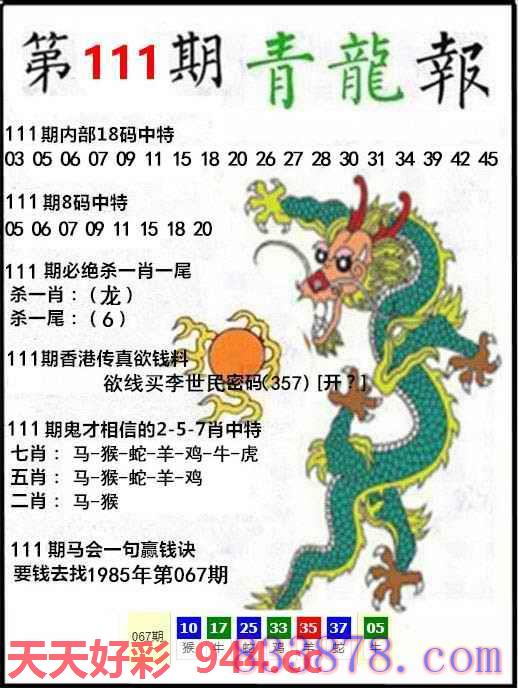 第111期青龍報
111期内部18码中特
03 05 06 07 09 11 15 18 20 26 27 28 30 31 34 39 42 45
111期8码中特
05 06 07 09 11 15 18 20
111期必绝杀一肖一尾
杀一肖：（龙）
杀一尾：（6）
111期香港传真欲钱料
欲线买李世民密码(357) [开？]
111期鬼才相信的2-5-7肖中特
七肖：马-猴-蛇-羊-鸡-牛-虎
五肖：马-猴-蛇-羊-鸡
二肖：马-猴
111期马会一句赢钱诀
要钱去找1985年第067期
067期 10 17 25 33 35 37 05
猴 牛 蛇 鸡 羊 蛇 牛
天天好彩 944.cc
878.com